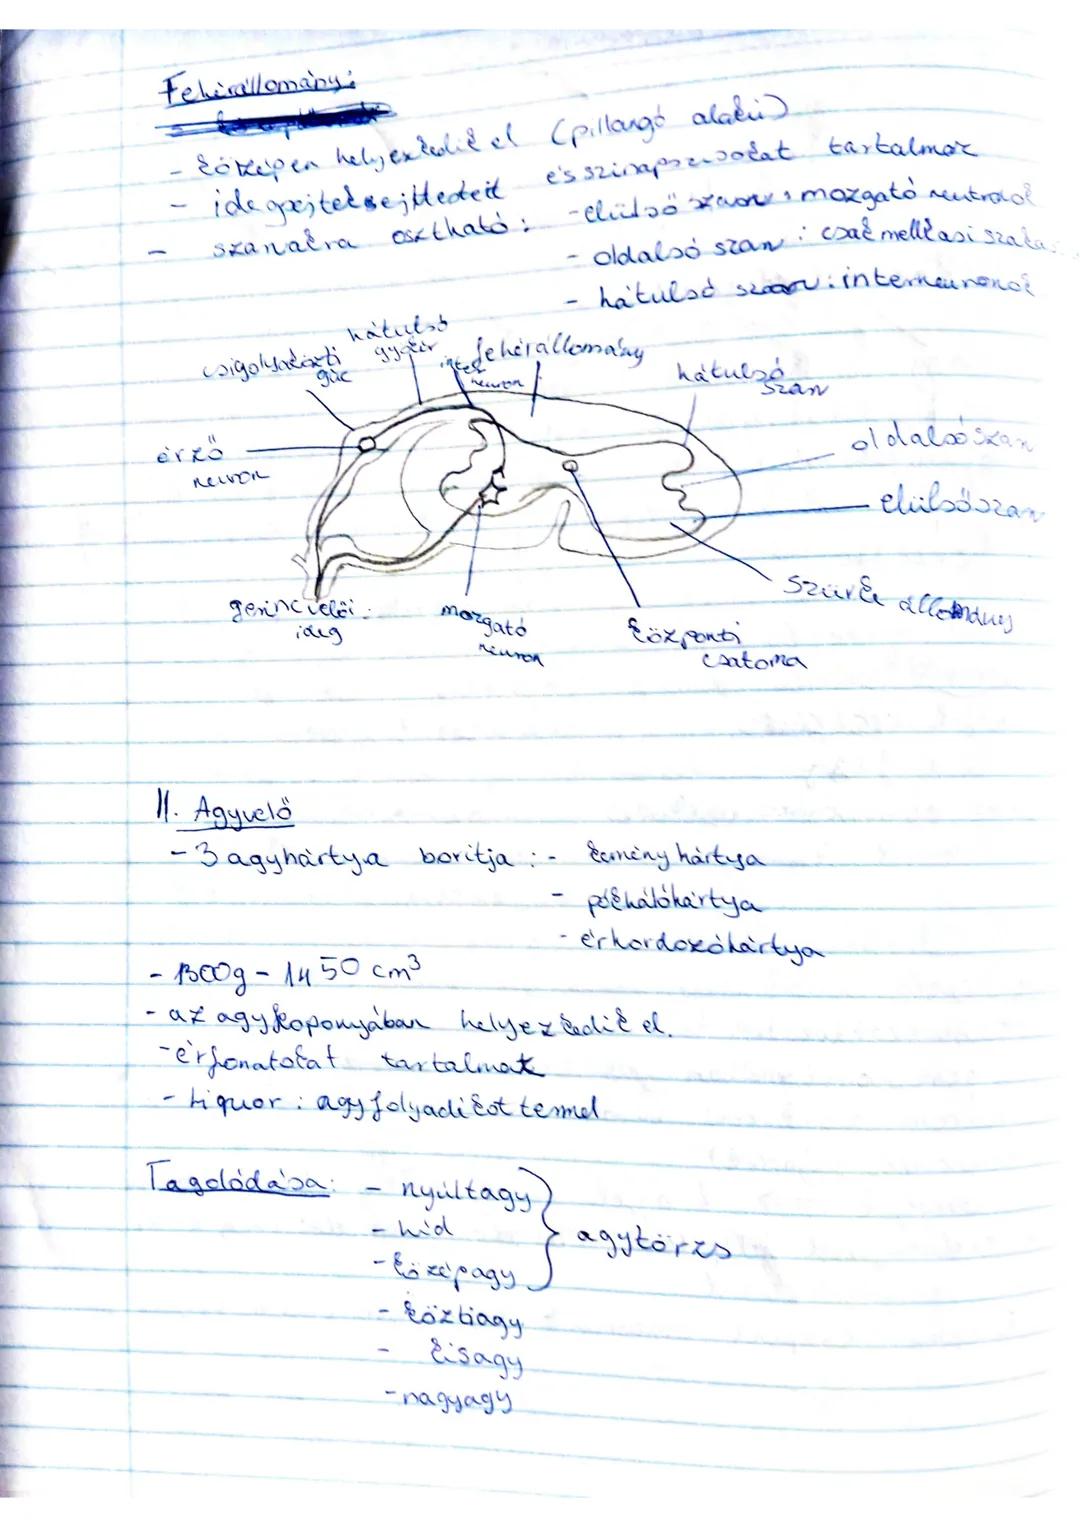 Fehérállomány:
- középen helyezkedik el (pillangó alakú)
- idegsejtek sejttesteit és szinapszisokat tartalmaz
- szarvakra osztható: - elülső szarv: mozgató neuronok
- oldalsó szarv: csak mellkasi szaka
- hátulsó szarv: interneuronok
csigolyaközti
gúc
hátulsó
gyökér
inter
neuron
fehérállomány
hátulsó
szarv
érző
neuron
oldalsó szarv
elülső szarv
szürke állomány
gerincvelői
ideg
mozgató
neuron
központi
csatorna
II. Agyvelő
- 3 agyhártya borítja: - kemény hártya
- pókhálóhártya
- érhordozóhártya
- 1300g - 1450 cm³
- az agykoponyában helyezkedik el.
- érfonatokat tartalmaz
- Liquor: agyfolyadékot termel
Tagolódása: - nyúltagy
- híd
- középagy
} agytörzs
- köztiagy
- kisagy
- nagyagy